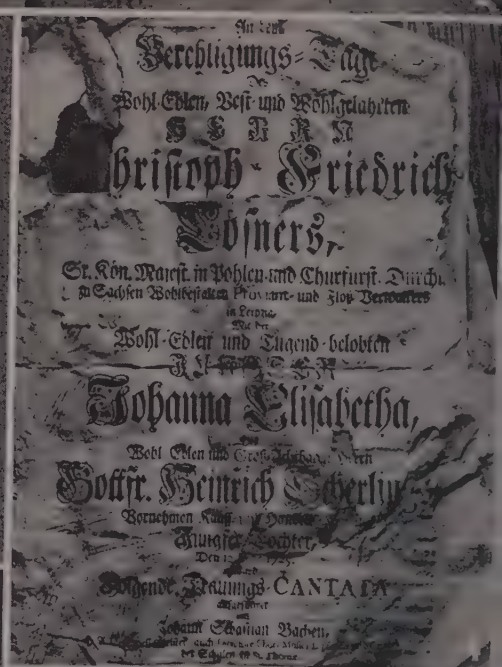 An dem
Verehligungs-Tage
Des
Wohl-Edlen, Vest- und Wohlgelahrten
HERRN
Christoph-Friedrich
Lösners,
Sr. Kön. Majest. in Pohlen und Churfürst. Durchl.
zu Sachsen Wohlbestalten Proviant- und Floß Verwalters
in Leipzig
Mit der
Wohl-Edlen und Tugend-belobten
JUNGFER
Johanna Elisabetha,
Des
Wohl Edlen und Herrn
Gottfr. Heinrich Scherling
Vornehmen Kauff- und Handels
Jungfer Tochter,
Den
Folgende Trauungs-CANTATA
von
Johann Sebastian Bachen,
Capellmeister auch
der Schulen zu S. Thomæ.